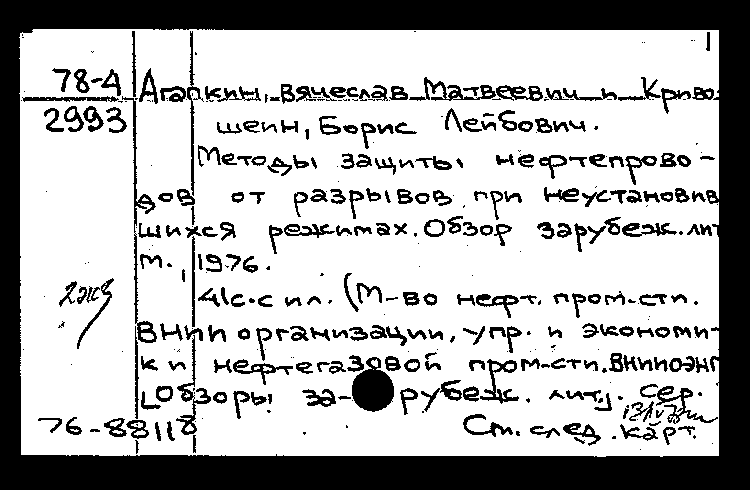 78-4 Агапкин, Вячеслав Матвеевич и Криво-
2993 шеин, Борис Лейбович.
Методы защиты нефтепрово-
дов от разрывов при неустановив
шихся режимах. Обзор зарубеж. лит
М., 1976.
2экз 41с. с ил. (М-во нефт. пром-сти.
ВНИИ организации, упр. и экономи-
ки нефтегазовой пром-сти. ВНИИОЭНГ
[Обзоры за-рубеж. лит.]. Сер.
76-88118 См. след. карт.